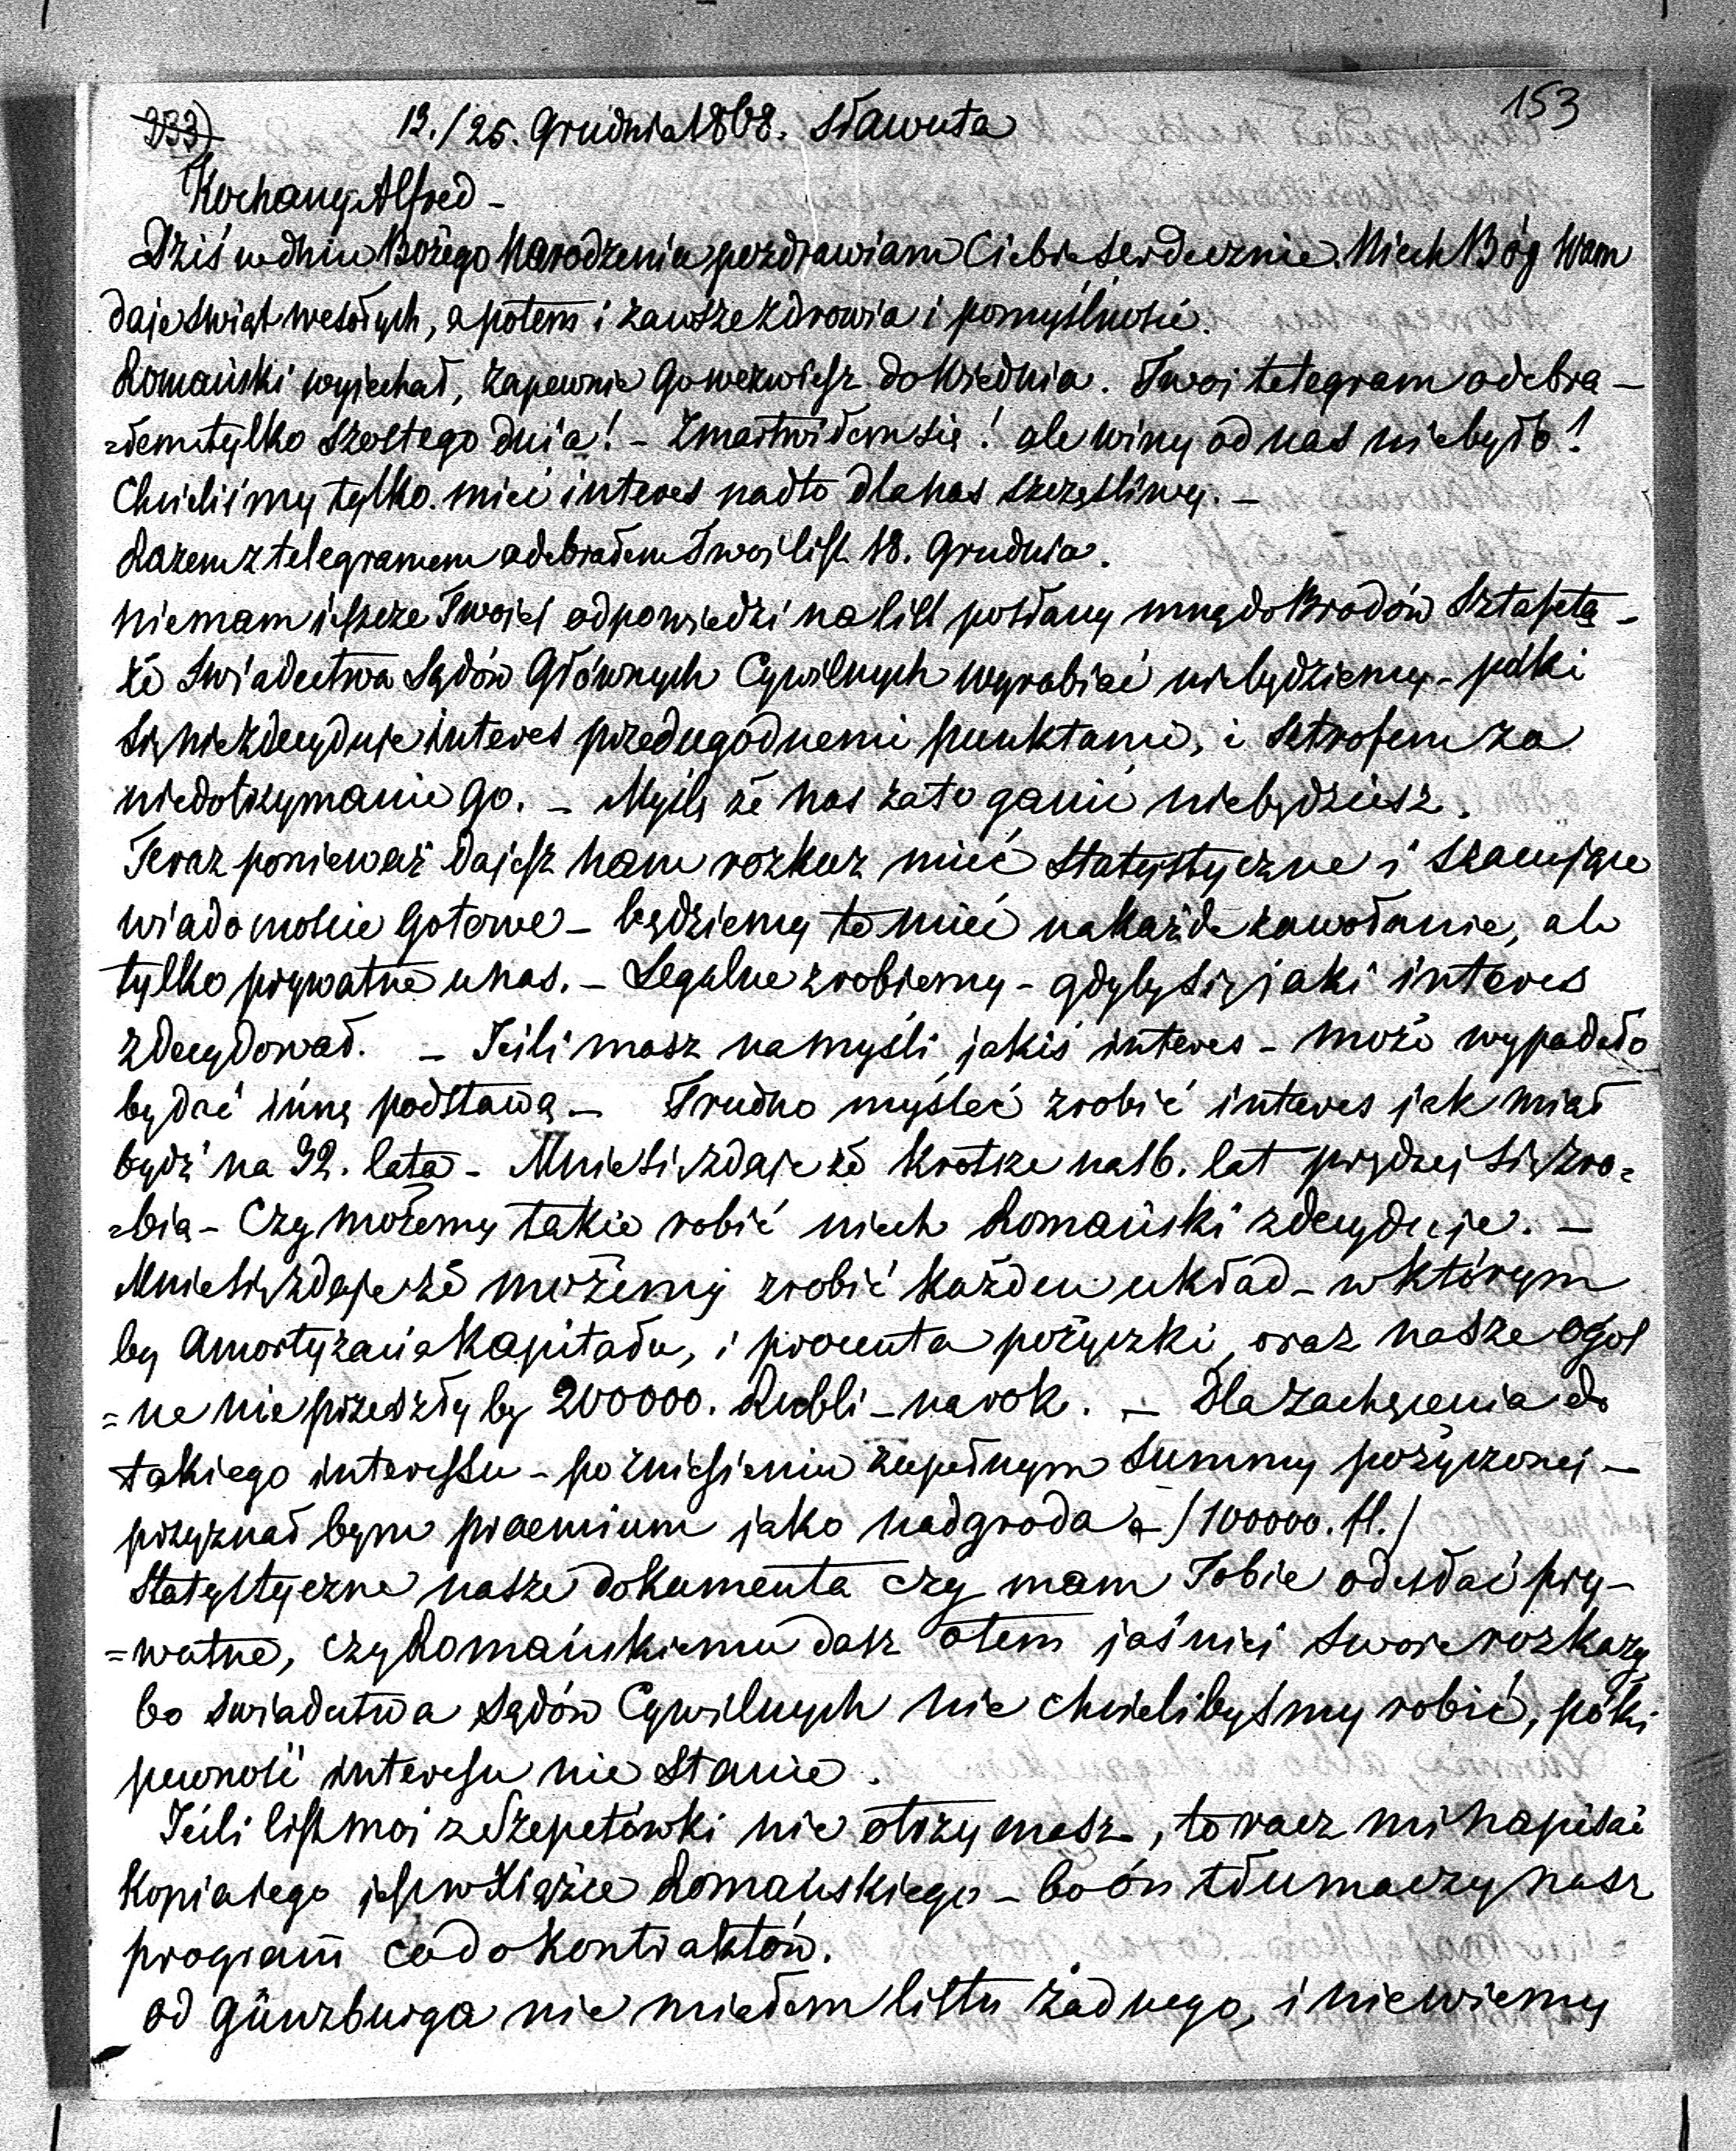 153
233)
13./25. Grudnia 1868. Sławuta
Kochany Alfred -
Dziś w dniu Bożego Narodzenia pozdrawiam Ciebie serdecznie. Niech Bóg Wam
daje świąt wesołych, a potem i zawsze zdrowia i pomyślności.
Romański wyjechał, zapewnie Go wezwiesz do Wiednia. Twoi telegram odebra-
=łem tylko szostego dnia! - Zmartwiłem się! ale winy od nas niebyło!
Chcieliśmy tylko mieć interes nadto dla nas szczęśliwy. -
Razem z telegramem odebrałem Twoi list 18. Grudnia.
Niemam ieszcze Twoiei odpowiedzi na list posłany mną do Brodów Sztafetą -
że Swiadectwa Sądów Głównych Cywilnych wyrabiać niebędziemy - póki
się niezdecyduje interes przedugodnemi punktami, i sztrofem za
niedotrzymanie go. - Myślę że nas zato ganić niebędziesz.
Teraz ponieważ dajesz nam rozkaz mieć statystyczne i szacujące
wiadomoście gotowe - będziemy to mieć na każde zawołanie, ale
tylko prywatne u nas. - Legalne zrobiemy - gdyby się jaki interes
zdecydował. - Jeili masz na myśli jakiś interes - może wypadało
będzć inną podstawą - Trudno myśleć zrobić interes jak miał
bydź na 32. lata - Mnie się zdaje że krotsze na 16. lat prędzej się zro=
=bią - Czy możemy takie robić niech Romański zdecyduje. -
Mnie się zdaje że możemy zrobić każden układ - w którym
by Amortyzacia Kapitału, i procenta pożyczki, oraz nasze ogol
=ne nie przeszły by 200000. Rubli - na rok. - Dla zachęcenia do
takiego interessu - po zniesieniu zupełnym Summy pożyczonej -
przyznał bym praemium jako nadgroda a /100000. fl./
Statystyczne nasze dokumenta czy mam Tobie odesłać pry-
=watne, czy Romańskiemu dasz otem jaśniei swoie rozkazy
bo swiadectwa Sądów Cywilnych nie chcielibyśmy robić, póki
pewność interesu nie stanie.
Jeili list moi z Szepetówki nie otrzymasz, to racz mi napisać
Kopia jego jest w Xiążce Romańskiego - bo ón tłumaczy nasz
program co do Kontraktów.
od Günzburga nie miałem listu żadnego, i niewiemy